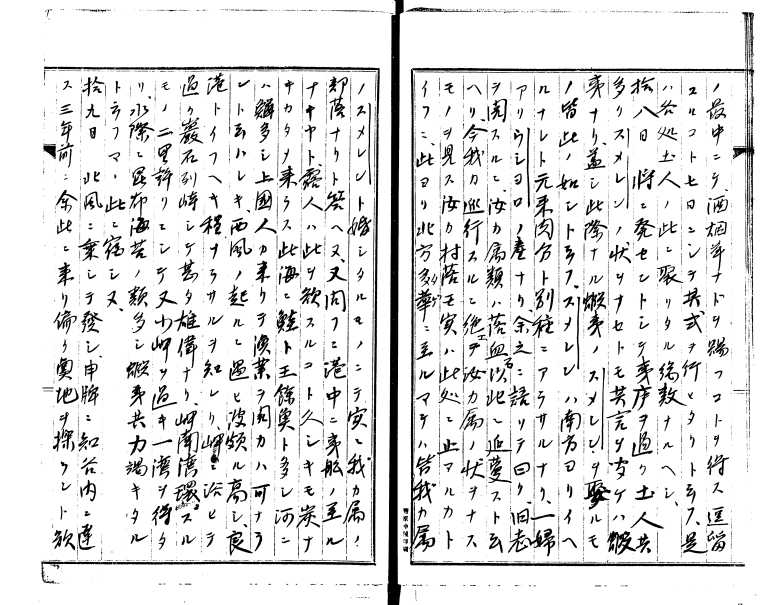 ノ最中ニテ、酒烟草ナドヲ賜フコトヲ得ス逗留
スルコト七日ニシテ其式ヲ行ヒタリト云フ、是
ハ各処土人ノ此ニ聚リタル総数ナルヘシ、
拾八日 将ニ発セントシテ夷序ヲ過ク土人共
多クスメレンノ状ヲナセトモ其言ヲ寄ケハ蝦
夷ナリ、蓋シ此際ナル蝦夷ノスメレンヲ娶ルモ
ノ皆此ノ如シト云フ、スメレンハ南方ヨリイヘ
ルナレト元来同分ト別種ニアラサルナリ、一婦
アリウシヨロノ産ナリ余之ニ語リテ曰ク、旧志
ヲ閲スルニ、汝カ属類ハ落血以此ニ延蔓スト云
ヘリ今我カ巡行スルニ絶エテ汝カ属ノ状ヲナス
モノヲ見ス汝カ村落モ実ハ此処ニ止マルカト
イフニ、此ヨリ北方多華ニ至ルマテハ皆我カ属
ノスメレント婚シタルモノニテ実ニ我カ属ノ
部落ナリト答ヘヌ、又問フニ港中ニ夷船ノ至ル
ナキヤト露人ハ此ヲ欲スルコト久シキモ炭ナ
キカタメ来ラス此海ニ鮭ト王餘魚ト多シ河ニ
ハ鱒多シ上國人カ来リテ漁業ヲ開カハ可ナラ
ント云ハレキ、西風ノ起ルニ遇ヒ波頗ル高シ、良
港トイフヘキ程ヲラサルヲ知レリ、岬ニ沿ヒテ
過ク巖石列峙シテ甚タ雄偉ナリ、岬南湾環スル
モノ二里許リニシテ又小岬ヲ過キ一湾ヲ得タ
リ、水際ニ昆布海苔ノ類多シ蝦夷共力竭キタル
トテフマ、此ニ宿シヌ、
拾九日 北風ニ乗シテ發シ、申牌ニ知谷内ニ達
ス三年前ニ余此ニ来リ偏ク奥地ヲ探ラント欲